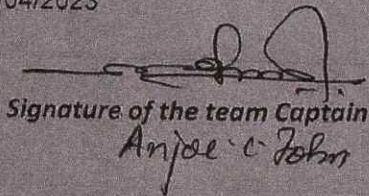 04/2023
Signature of the team Captain
Anjoe C. John